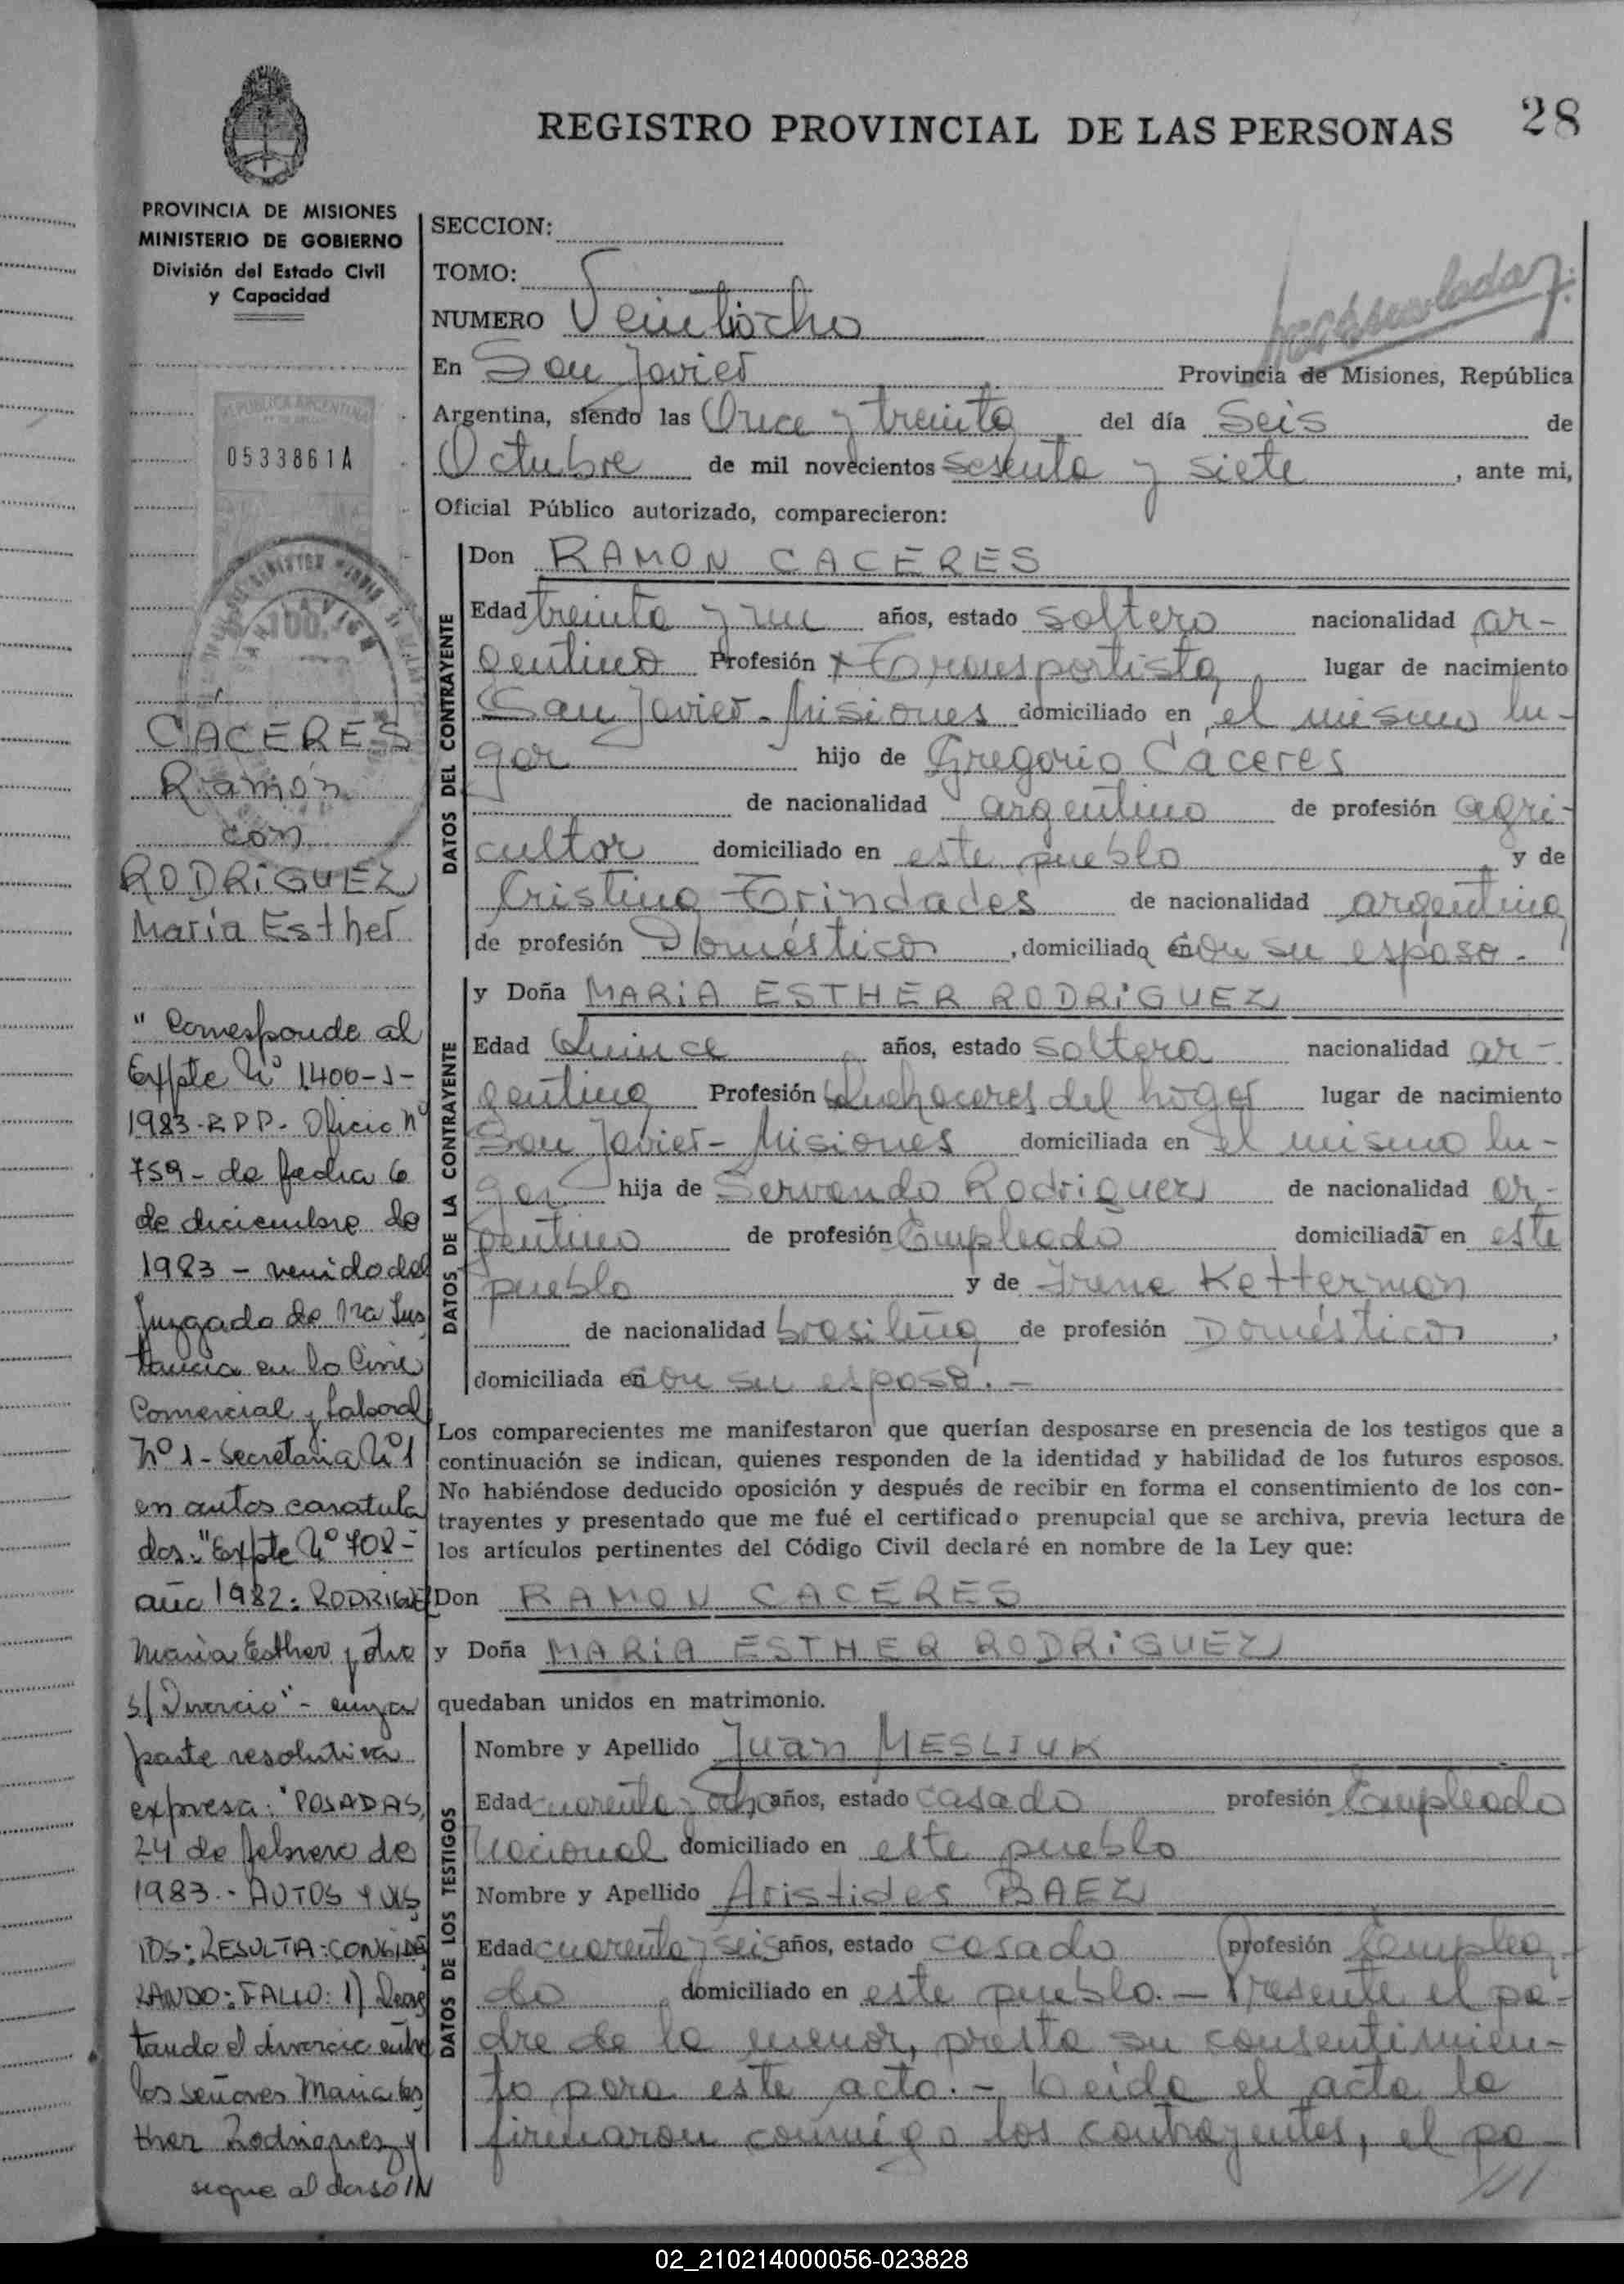 REGISTRO PROVINCIAL DE LAS PERSONAS
28
PROVINCIA DE MISIONES
MINISTERIO DE GOBIERNO
División del Estado Civil
y Capacidad
REPUBLICA ARGENTINA
0533861A
CACERES
Ramón
con
RODRiGUEZ
María Esther
" Corresponde al
Expte Nº 1400-J-
1983-RPP- Oficio nº
759- de fecha 6
de diciembre de
1983 - venido del
Juzgado de 1ra Ins
tancia en lo Civil
Comercial y Laboral
Nº 1 - Secretaria Nº 1
en autos caratula
dos: "Expte Nº 708-
año 1982: RODRIGUEZ
Maria Esther y otro
s/ Divorcio" - cuya
parte resolutiva
expresa: "POSADAS,
24 de febrero de
1983.- AUTOS Y VIS
TOS: RESULTA: CONSIDE
RANDO: FALLO: 1) Decre
tando el divorcio entre
los señores Maria Es
ther Rodriguez y
sigue al dorso ///
SECCION:
TOMO:
NUMERO Veintiocho
En San Javier Provincia de Misiones, República
Argentina, siendo las Once y treinta del día Seis de
Octubre de mil novecientos sesenta y siete, ante mi,
Oficial Público autorizado, comparecieron:
DATOS DEL CONTRAYENTE
Don RAMON CACERES
Edad treinta y un años, estado soltero nacionalidad ar-
gentino Profesión Transportista lugar de nacimiento
San Javier - Misiones domiciliado en el mismo lu-
gar hijo de Gregorio Caceres
de nacionalidad argentino de profesión agri-
cultor domiciliado en este pueblo y de
Cristina Trindades de nacionalidad argentina
de profesión Domésticos, domiciliado con su esposo.
DATOS DE LA CONTRAYENTE
y Doña MARiA ESTHER RODRiGUEZ
Edad Quince años, estado soltera nacionalidad ar-
gentina Profesión Quehaceres del hogar lugar de nacimiento
San Javier - Misiones domiciliada en el mismo lu-
gar hija de Servando Rodriguez de nacionalidad ar-
gentino de profesión Empleado domiciliada en este
pueblo y de Irene Ketterman
de nacionalidad brasileña de profesión Domésticos,
domiciliada con su esposo.-
Los comparecientes me manifestaron que querían desposarse en presencia de los testigos que a
continuación se indican, quienes responden de la identidad y habilidad de los futuros esposos.
No habiéndose deducido oposición y después de recibir en forma el consentimiento de los con-
trayentes y presentado que me fué el certificado prenupcial que se archiva, previa lectura de
los artículos pertinentes del Código Civil declaré en nombre de la Ley que:
Don RAMON CACERES
y Doña MARiA ESTHER RODRiGUEZ
quedaban unidos en matrimonio.
DATOS DE LOS TESTIGOS
Nombre y Apellido Juan MESLIUK
Edad cuarenta y ocho años, estado casado profesión Empleado
Nacional domiciliado en este pueblo
Nombre y Apellido Aristides BAEZ
Edad cuarenta y seis años, estado casado profesión Emplea-
do domiciliado en este pueblo.- Presente el pa-
dre de la menor, presta su consentimien-
to para este acto.- Leida el acta la
firmaron conmigo los contrayentes, el pa-
///
02_210214000056-023828